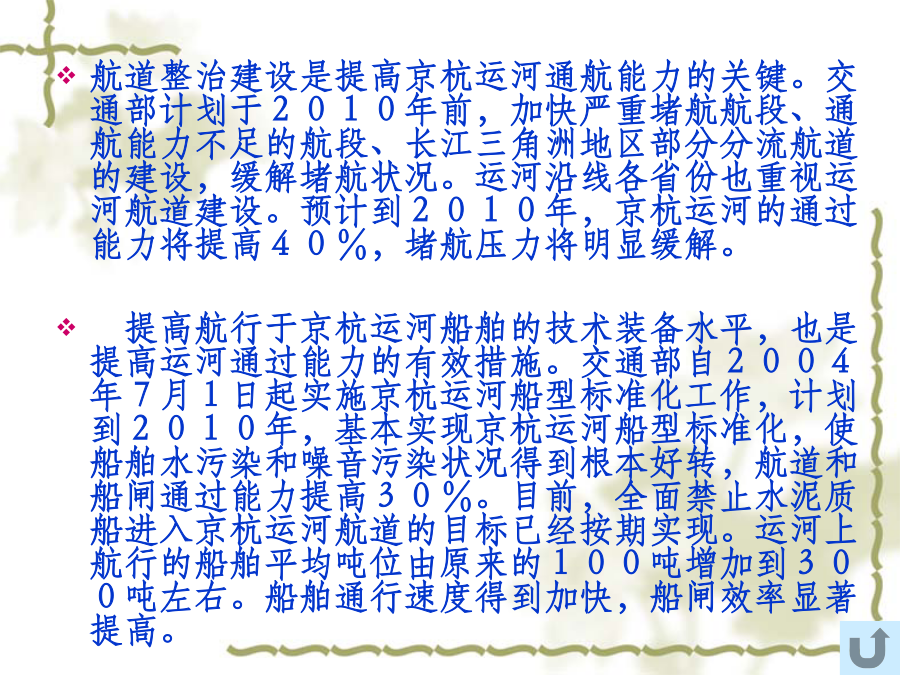 航道整治建设是提高京杭运河通航能力的关键。交
通部计划于２０１０年前，加快严重堵航航段、通
航能力不足的航段、长江三角洲地区部分分流航道
的建设，缓解堵航状况。运河沿线各省份也重视运
河航道建设。预计到２０１０年，京杭运河的通过
能力将提高４０％，堵航压力将明显缓解。
提高航行于京杭运河船舶的技术装备水平，也是
提高运河通过能力的有效措施。交通部自２００４
年７月１日起实施京杭运河船型标准化工作，计划
到２０１０年，基本实现京杭运河船型标准化，使
船舶水污染和噪音污染状况得到根本好转，航道和
船闸通过能力提高３０％。目前，全面禁止水泥质
船进入京杭运河航道的目标已经按期实现。运河上
航行的船舶平均吨位由原来的１００吨增加到３０
０吨左右。船舶通行速度得到加快，船闸效率显著
提高。